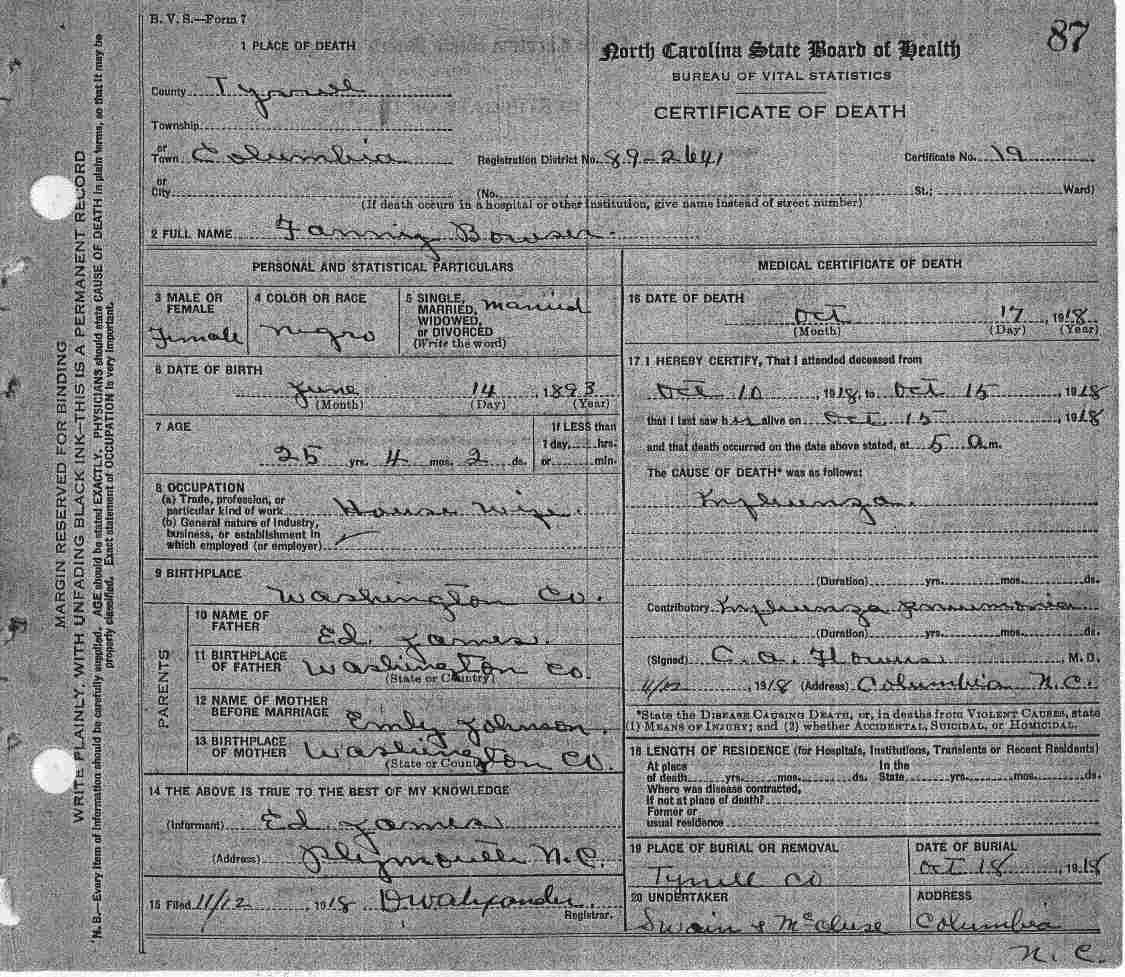 B. V. S.—Form 7
87
1 PLACE OF DEATH
North Carolina State Board of Health
BUREAU OF VITAL STATISTICS
CERTIFICATE OF DEATH
County Tyrrell
Township
or Town Columbia Registration District No. 89-2641 Certificate No. 19
or City (No. St.; Ward)
(If death occurs in a hospital or other institution, give name instead of street number)
2 FULL NAME Fanniy Bowser
PERSONAL AND STATISTICAL PARTICULARS
3 MALE OR FEMALE Female
4 COLOR OR RACE negro
5 SINGLE, MARRIED, WIDOWED, or DIVORCED (Write the word) married
6 DATE OF BIRTH
June 14, 1893
(Month) (Day) (Year)
7 AGE
25 yrs. 4 mos. 2 ds.
If LESS than
1 day, hrs.
or min.
8 OCCUPATION
(a) Trade, profession, or
particular kind of work House wife
(b) General nature of Industry,
business, or establishment in
which employed (or employer)
9 BIRTHPLACE
Washington Co.
PARENTS
10 NAME OF FATHER
Ed. James.
11 BIRTHPLACE OF FATHER Washington Co.
(State or Country)
12 NAME OF MOTHER BEFORE MARRIAGE Emly Johnson.
13 BIRTHPLACE OF MOTHER Washington Co.
(State or Country)
14 THE ABOVE IS TRUE TO THE BEST OF MY KNOWLEDGE
(Informant) Ed James
(Address) Plymouth N.C.
15 Filed 11/12 1918 DW Alexander
Registrar.
MEDICAL CERTIFICATE OF DEATH
16 DATE OF DEATH
Oct 17, 1918
(Month) (Day) (Year)
17 I HEREBY CERTIFY, That I attended deceased from
Oct 10, 1918, to Oct 15, 1918
that I last saw her alive on Oct. 15, 1918
and that death occurred on the date above stated, at 5 a m.
The CAUSE OF DEATH* was as follows:
Influenza
(Duration) yrs. mos. ds.
Contributory Influenza pneumonia
(Duration) yrs. mos. ds.
(Signed) C. A. Flowers, M. D.
11/12, 1918 (Address) Columbia N.C.
*State the DISEASE CAUSING DEATH, or, in deaths from VIOLENT CAUSES, state
(1) MEANS OF INJURY; and (2) whether ACCIDENTAL, SUICIDAL, or HOMICIDAL.
18 LENGTH OF RESIDENCE (for Hospitals, Institutions, Transients or Recent Residents)
At place of death yrs. mos. ds. In the State yrs. mos. ds.
Where was disease contracted,
If not at place of death?
Former or
usual residence
19 PLACE OF BURIAL OR REMOVAL
Tyrrell Co
DATE OF BURIAL
Oct 18, 1918
20 UNDERTAKER
Swain & McCluse
ADDRESS
Columbia
N.C.
MARGIN RESERVED FOR BINDING
WRITE PLAINLY, WITH UNFADING BLACK INK—THIS IS A PERMANENT RECORD
N. B.—Every item of information should be carefully supplied. AGE should be stated EXACTLY. PHYSICIANS should state CAUSE OF DEATH in plain terms, so that it may be
properly classified. Exact statement of OCCUPATION is very important.